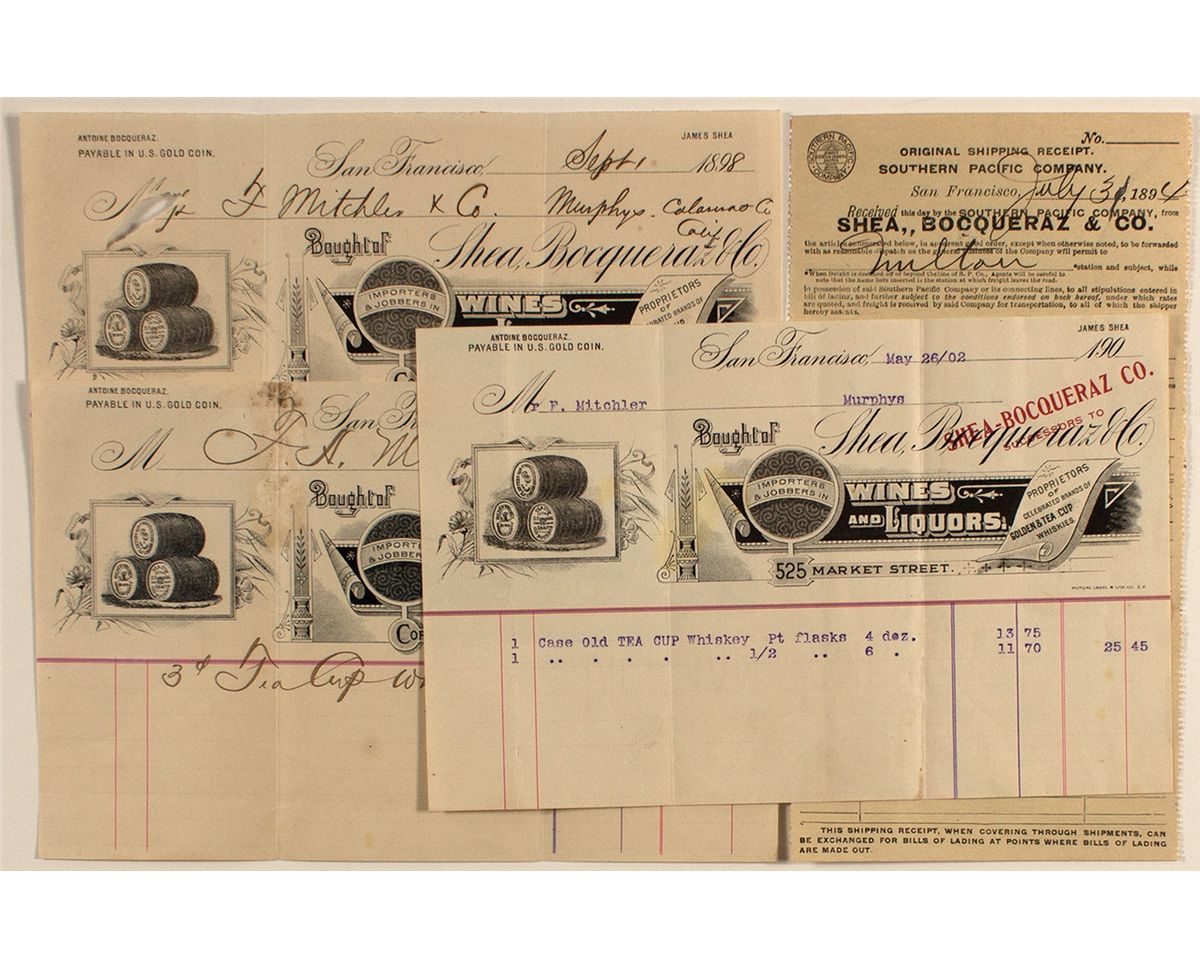 ANTOINE BOCQUERAZ.
PAYABLE IN U.S. GOLD COIN.
JAMES SHEA
San Francisco, Sept 1 1898
M F Mitchler & Co. Murphys. Calaveras Co
Calif
Bought of Shea, Bocqueraz & Co.
IMPORTERS & JOBBERS IN
WINES
PROPRIETORS
OF
CELEBRATED BRANDS OF
ANTOINE BOCQUERAZ.
PAYABLE IN U.S. GOLD COIN.
San Fra
M F. A. M
Bought of
IMPORTE
& JOBBERS
COR
3 Tea Cup
No.
SOUTHERN PACIFIC COMPANY
ORIGINAL SHIPPING RECEIPT.
SOUTHERN PACIFIC COMPANY.
San Francisco, July 31, 1894
Received this day by the SOUTHERN PACIFIC COMPANY, from
SHEA,, BOCQUERAZ & CO.
the articles enumerated below, in apparent good order, except when otherwise noted, to be forwarded
with as reasonable dispatch as the general business of the Company will permit to
Milton *station and subject, while
*When freight is destined off or beyond the line of S. P. Co., Agents will be careful to
note that the name here inserted is the station at which freight leaves the road.
In possession of said Southern Pacific Company or its connecting lines, to all stipulations entered in
bill of lading, and further subject to the conditions endorsed on back hereof, under which rates
are quoted, and freight is received by said Company for transportation, to all of which the shipper
hereby assents.
ANTOINE BOCQUERAZ.
PAYABLE IN U.S. GOLD COIN.
JAMES SHEA
San Francisco, May 26/02 190
Mr F. Mitchler Murphys
SHEA-BOCQUERAZ CO.
SUCCESSORS TO
Bought of Shea, Bocqueraz & Co.
IMPORTERS
& JOBBERS IN
WINES
AND LIQUORS.
PROPRIETORS
OF
CELEBRATED BRANDS OF
GOLDEN & TEA CUP
WHISKIES
525 MARKET STREET.
MUTUAL LABEL & LITH. CO. S.F.
1 Case Old TEA CUP Whiskey Pt flasks 4 doz. 13 75
1 .. . . . .. 1/2 .. 6 . 11 70 25 45
THIS SHIPPING RECEIPT, WHEN COVERING THROUGH SHIPMENTS, CAN
BE EXCHANGED FOR BILLS OF LADING AT POINTS WHERE BILLS OF LADING
ARE MADE OUT.